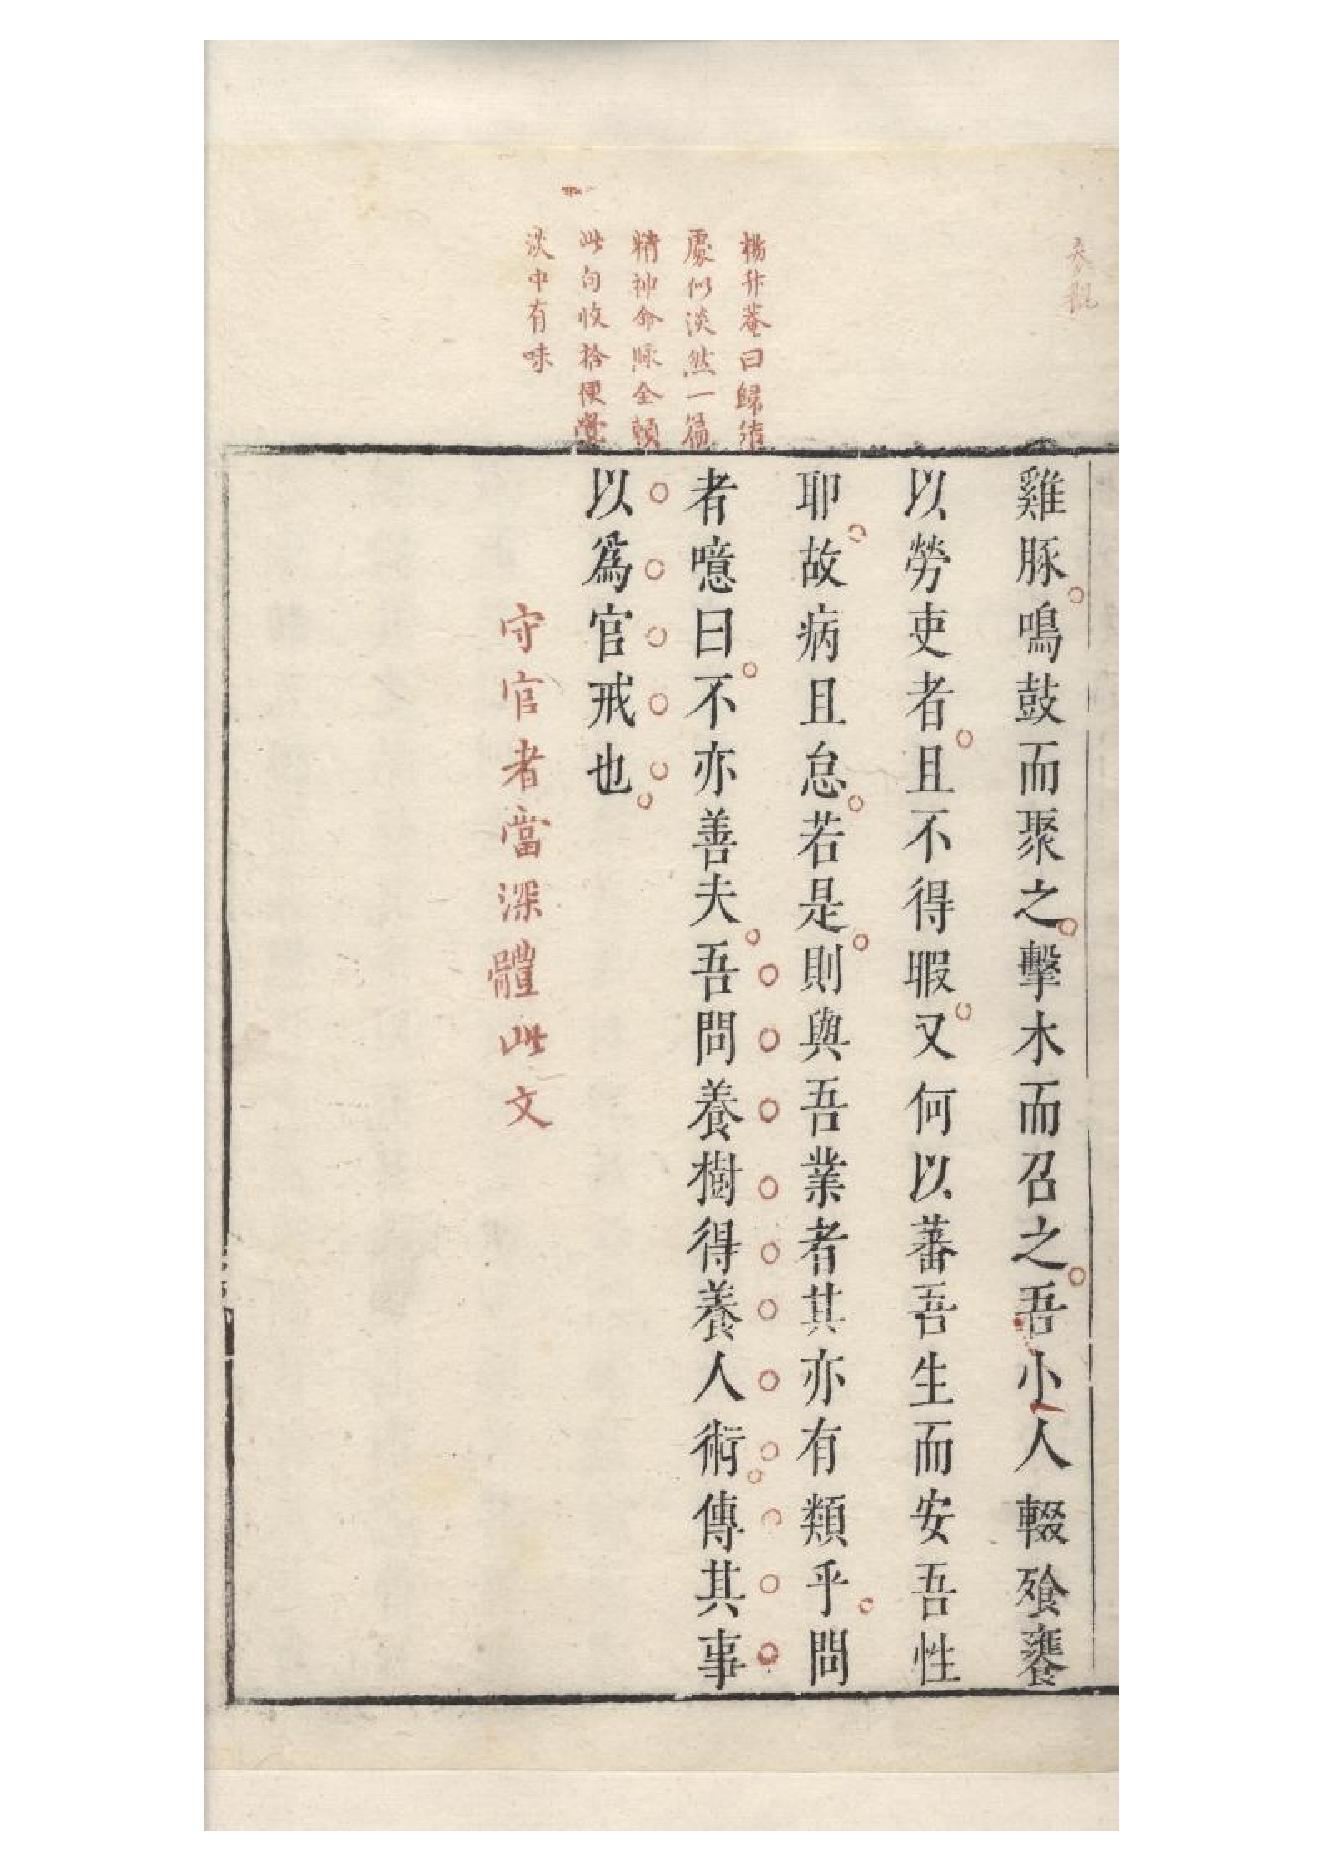 參觀
楊升菴曰歸結
處似淡然一篇
精神命脉全頼
此句收拾便覺
淡中有味
雞豚鳴鼓而聚之擊木而召之吾小人輟飱饔
以勞吏者且不得暇又何以蕃吾生而安吾性
耶故病且怠若是則與吾業者其亦有類乎問
者噫曰不亦善夫吾問養樹得養人術傳其事
以爲官戒也
守官者當深體此文